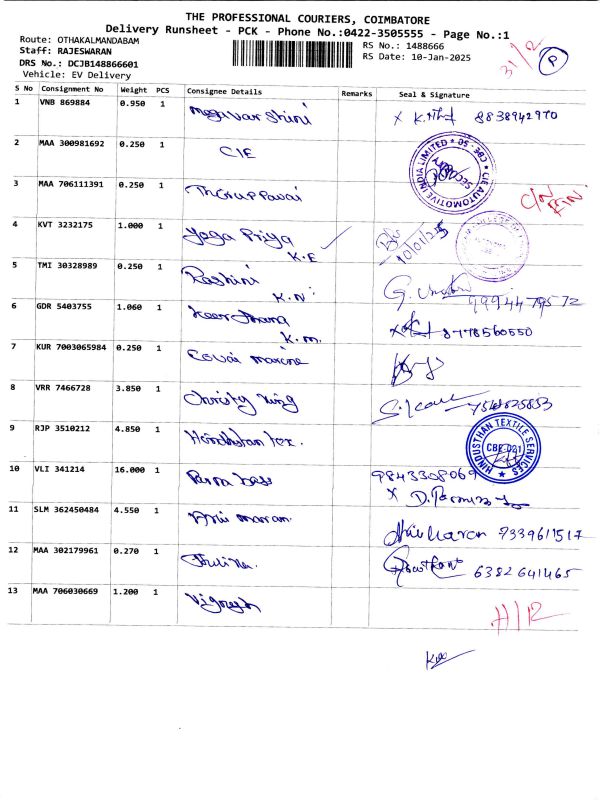 THE PROFESSIONAL COURIERS, COIMBATORE
Delivery Runsheet - PCK - Phone No.:0422-3505555 - Page No.:1
Route: OTHAKALMANDABAM
Staff: RAJESWARAN
DRS No.: DCJB148866601
Vehicle: EV Delivery
RS No.: 1488666
RS Date: 10-Jan-2025
31/12
P
S No Consignment No Weight PCS Consignee Details Remarks Seal & Signature
1 VNB 869884 0.950 1 Megavarshini 8838942970
2 MAA 300981692 0.250 1 CIE
CIE AUTOMOTIVE INDIA LIMITED ★ CBE-50 ★ SECURITY
3 MAA 706111391 0.250 1
4 KVT 3232175 1.000 1 Yoga Priya 10/01/25
K.E
5 TMI 30328989 0.250 1 Roshini
K.N
6 GDR 5403755 1.060 1 8778560550
K.M.
7 KUR 7003065984 0.250 1 Covai marine
8 VRR 7466728 3.850 1 Christy King
9 RJP 3510212 4.850 1 Hindustan tex.
HINDUSTHAN TEXTILE SERVICES ★ CBE-021
10 VLI 341214 16.000 1
11 SLM 362450484 4.550 1
12 MAA 302179961 0.270 1 6382641465
13 MAA 706030669 1.200 1 Vignesh
11/12